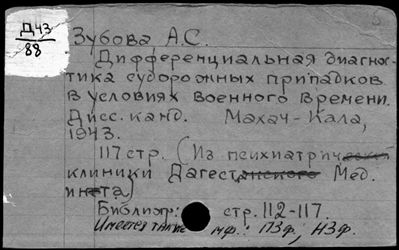 Д43
88
Зубова, А.С.
Дифференциальная диагнос-
тика судорожных припадков
в условиях военного времени.
Дисс. канд. Махач-Кала,
1943.
117 стр. (Из психиатрической
клиники Дагестанского Мед.
ин-та)
Библиогр: стр. 112-117.
Имеется также мф.: ПЗф; НЗф.